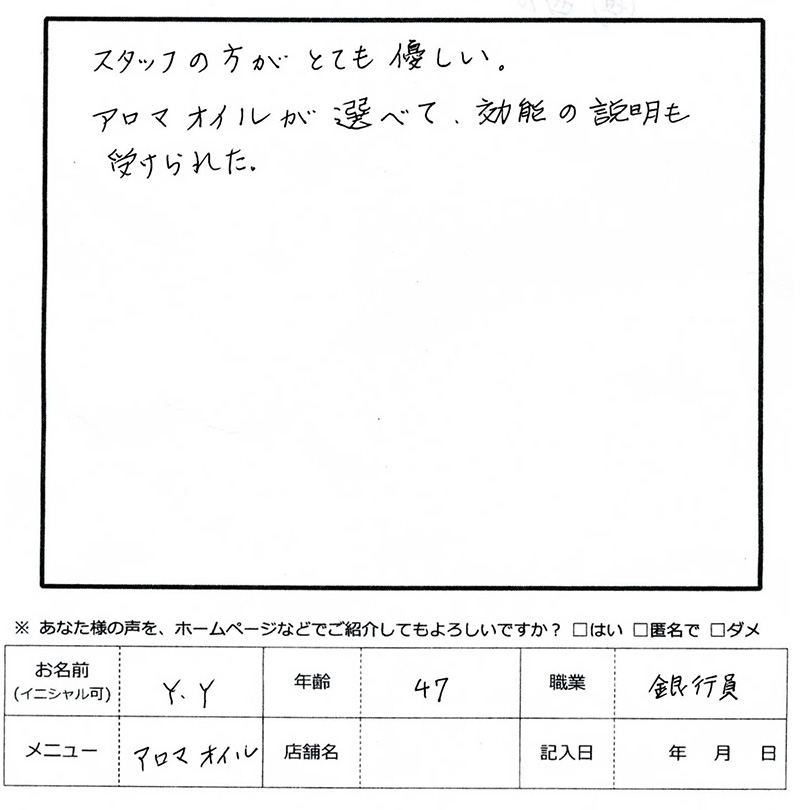 スタッフの方がとても優しい。
アロマオイルが選べて、効能の説明も
受けられた。
※ あなた様の声を、ホームページなどでご紹介してもよろしいですか？ □はい □匿名で □ダメ
お名前 (イニシャル可) Y.Y 年齢 47 職業 銀行員
メニュー アロマオイル 店舗名 記入日 年 月 日